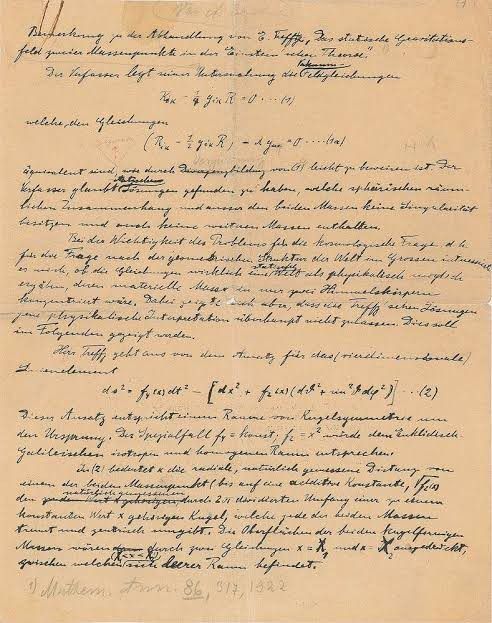 Bemerkung zu der Abhandlung von E. Trefftz „Das statische Gravitations-
feld zweier Massenpunkte in der Einstein'schen Theorie".
Der Verfasser legt seiner Untersuchung die Vakuum-Feldgleichungen
R_ik - 1/4 g_ik R = 0 ···(1)
welche den Gleichungen
(R_ik - 1/2 g_ik R) - λ g_ik = 0 ····(1a)
äquivalent sind, wie durch von (1) leicht zu beweisen ist. Der
Verfasser glaubt statischen Lösungen gefunden zu haben, welche sphärischen räum-
lichen Zusammenhang und ausser den beiden Massen keine Singularität
besitzen und auch keine weiteren Massen enthalten.
Bei der Wichtigkeit des Problems für die kosmologische Frage d. h.
für die Frage nach der geometrischen Struktur der Welt im Grossen interessierte
es mich, ob die Gleichungen wirklich eine statische Welt als physikalisch möglich
ergäben, deren materielle Masse in nur zwei Himmelskörpern
konzentriert wäre. Dabei zeigte sich aber, dass die Trefftz'schen Lösungen
jene physikalische Interpretation überhaupt nicht zulassen. Dies soll
im Folgenden gezeigt werden.
Herr Trefftz geht aus von dem Ansatz für das (vierdimensionale)
Linienelement
ds² = f₄(x)dt² - [dx² + f₂(x)(dϑ² + sin²ϑ dφ²)] ···(2)
Dieser Ansatz entspricht einem Raume von Kugelsymmetrie um
den Ursprung. Der Spezialfall f₄ = konst, f₂ = x² würde dem Euklidisch-
Galileischen isotropen und homogenen Raum entsprechen.
In (2) bedeutet x die radiale, natürlich gemessene Distanz von
einem der beiden Massenpunkte (bis auf eine additive Konstante), √f₂(x)
den natürlich gemessenen durch 2π dividierten Umfang einer zu einem
konstanten Wert x gehörigen Kugel, welche jede der beiden Massen
trennt und zentrisch umgibt. Die Oberflächen der beiden kugelförmigen
Massen wären durch zwei Gleichungen x = X₁ und x = X₂ ausgedrückt,
(X₁ < x < X₂)
zwischen welchen sich leerer Raum befindet.
1) Mathem. Ann. 86, 317, 1922